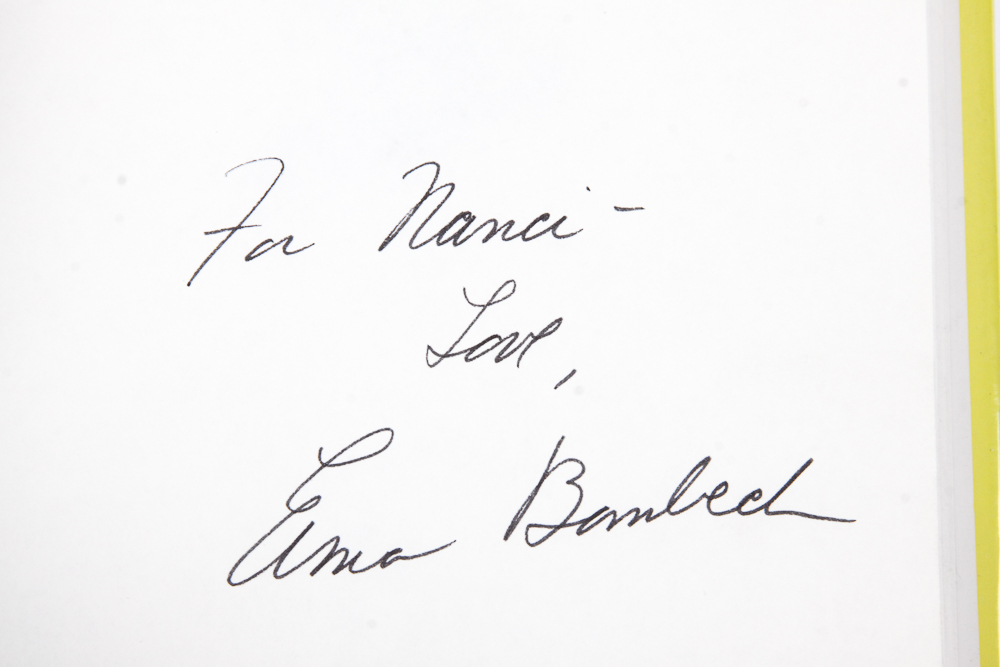 For Nanci -
Love,
Erma Bombeck